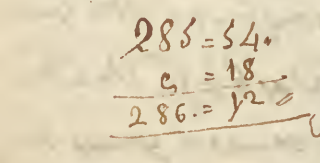 285=54.
= 18
286.=12